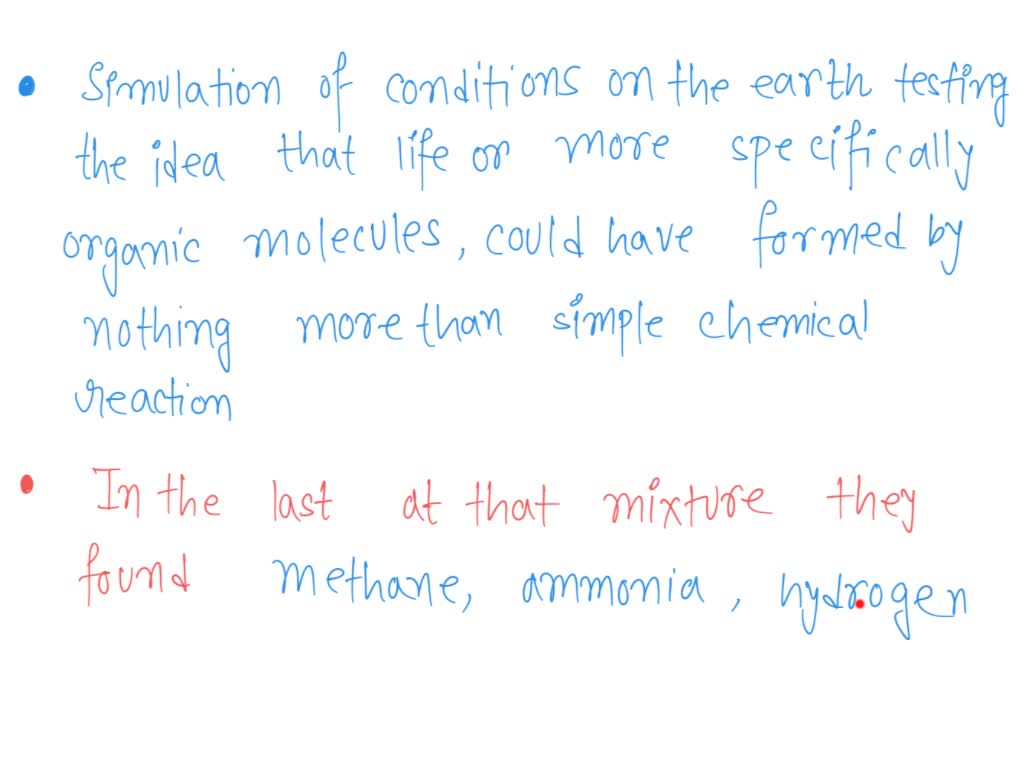 • Simulation of conditions on the earth testing
the idea that life or more specifically
organic molecules, could have formed by
nothing more than simple chemical
reaction
• In the last at that mixture they
found methane, ammonia, hydrogen